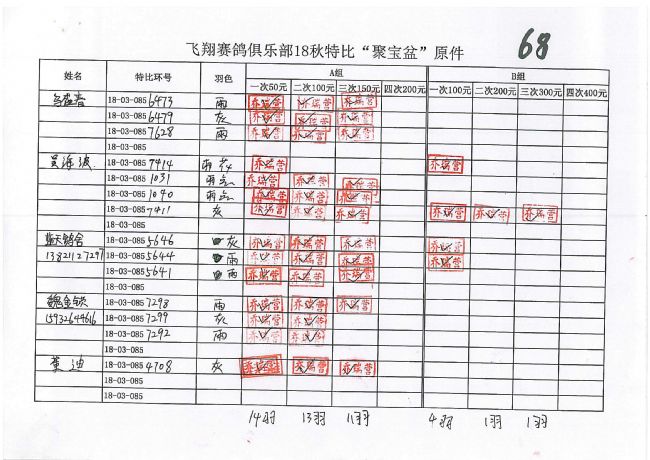 飞翔赛鸽俱乐部18秋特比“聚宝盆”原件 68
姓名 特比环号 羽色 A组 B组
一次50元 二次100元 三次150元 四次200元 一次100元 二次200元 三次300元 四次400元
18-03-085 6473 雨 乔瑞营 乔瑞营 乔瑞营
18-03-085 6479 灰 乔瑞营 乔瑞营 乔瑞营
18-03-085 7628 雨 乔瑞营 乔瑞营 乔瑞营
18-03-085
18-03-085 7414 雨花 乔瑞营 乔瑞营
18-03-085 1031 乔瑞营 乔瑞营 乔瑞营
18-03-085 1040 乔瑞营 乔瑞营 乔瑞营
18-03-085 7411 灰 乔瑞营 乔瑞营 乔瑞营 乔瑞营 乔瑞营 乔瑞营
18-03-085
蓝天鸽舍 18-03-085 5646 灰 乔瑞营 乔瑞营 乔瑞营 乔瑞营
13821127297 18-03-085 5644 雨 乔瑞营 乔瑞营 乔瑞营 乔瑞营
18-03-085 5641 雨 乔瑞营 乔瑞营 乔瑞营
18-03-085
魏金锁 18-03-085 7298 雨 乔瑞营 乔瑞营 乔瑞营
15932644616 18-03-085 7299 灰 乔瑞营 乔瑞营
18-03-085 7292 雨 乔瑞营 乔瑞营
18-03-085
董迪 18-03-085 4708 灰 乔瑞营 乔瑞营 乔瑞营
18-03-085
18-03-085
14羽 13羽 11羽 4羽 1羽 1羽